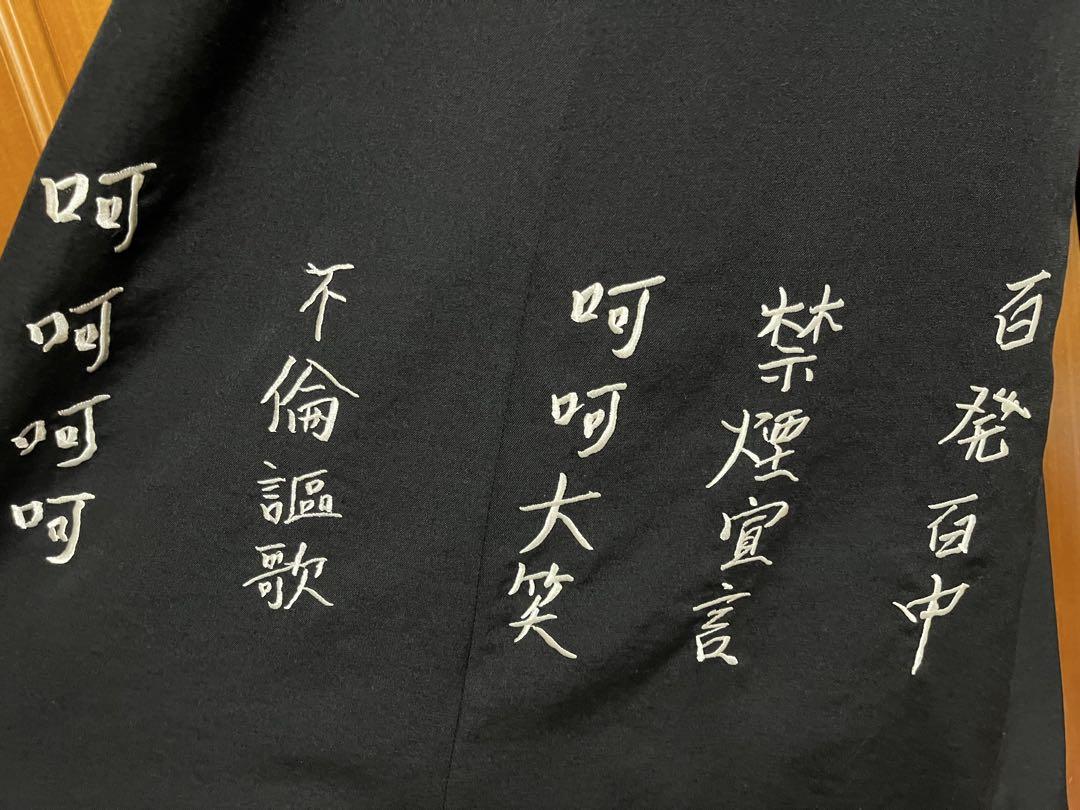 百発百中
禁煙宣言
呵呵大笑
不倫謳歌
呵呵呵呵